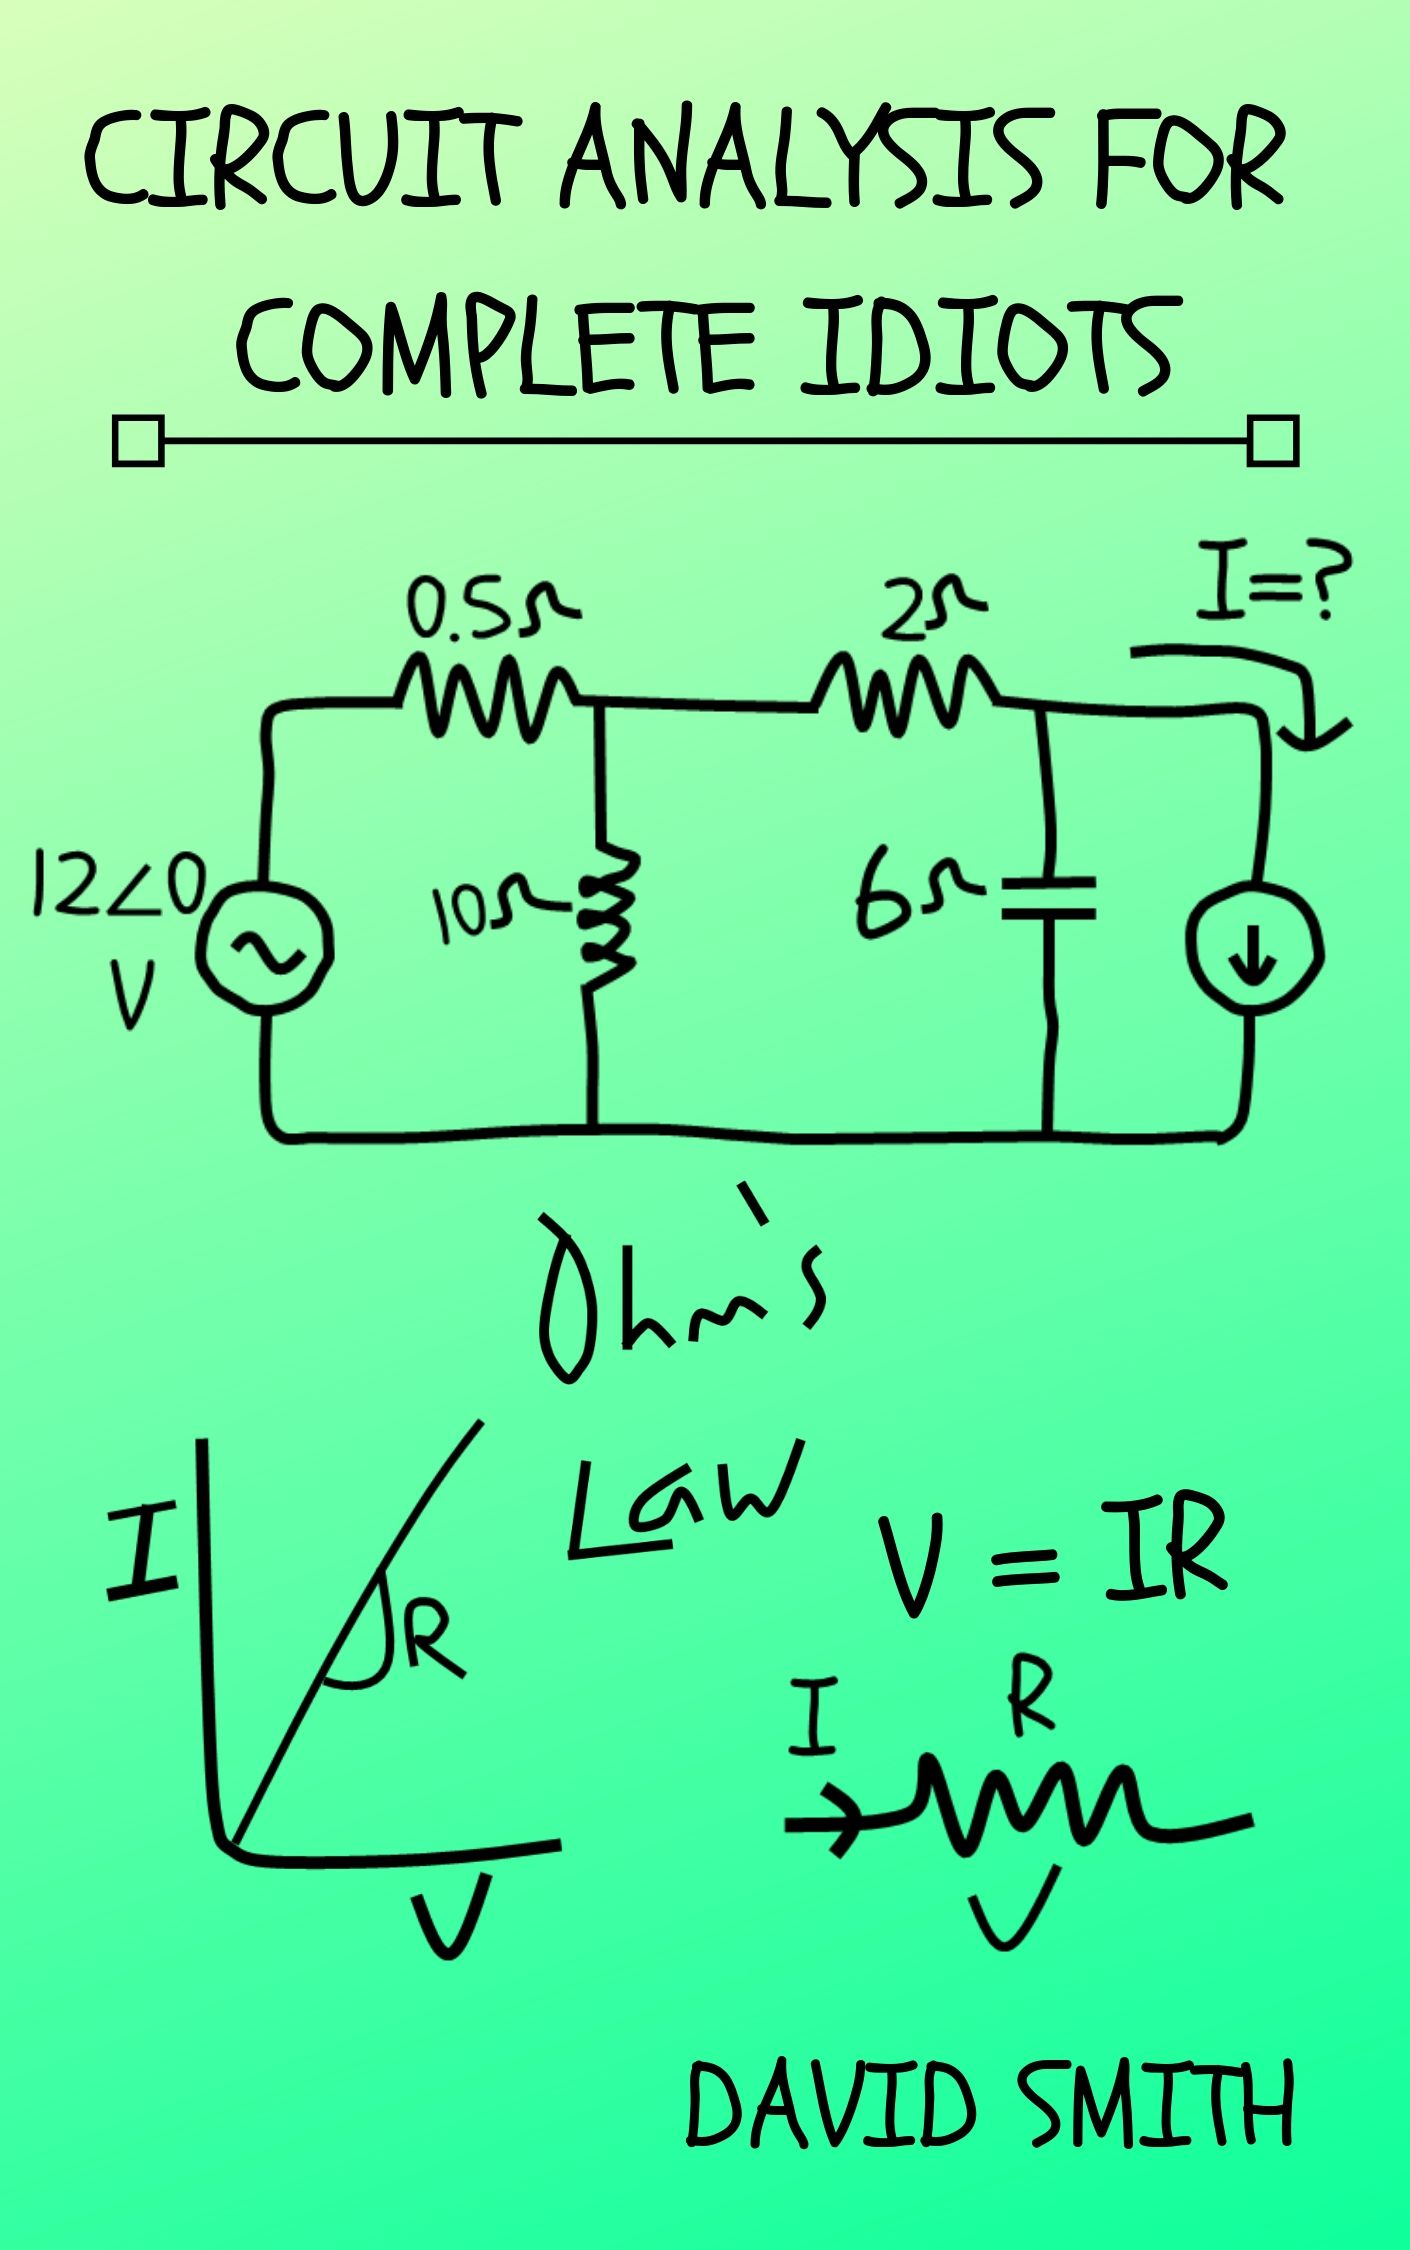 CIRCUIT ANALYSIS FOR
COMPLETE IDIOTS
I=?
0.5Ω
2Ω
12∠0
V
10Ω
6Ω
Ohm's
Law
I
R
V
V = IR
I
R
V
DAVID SMITH